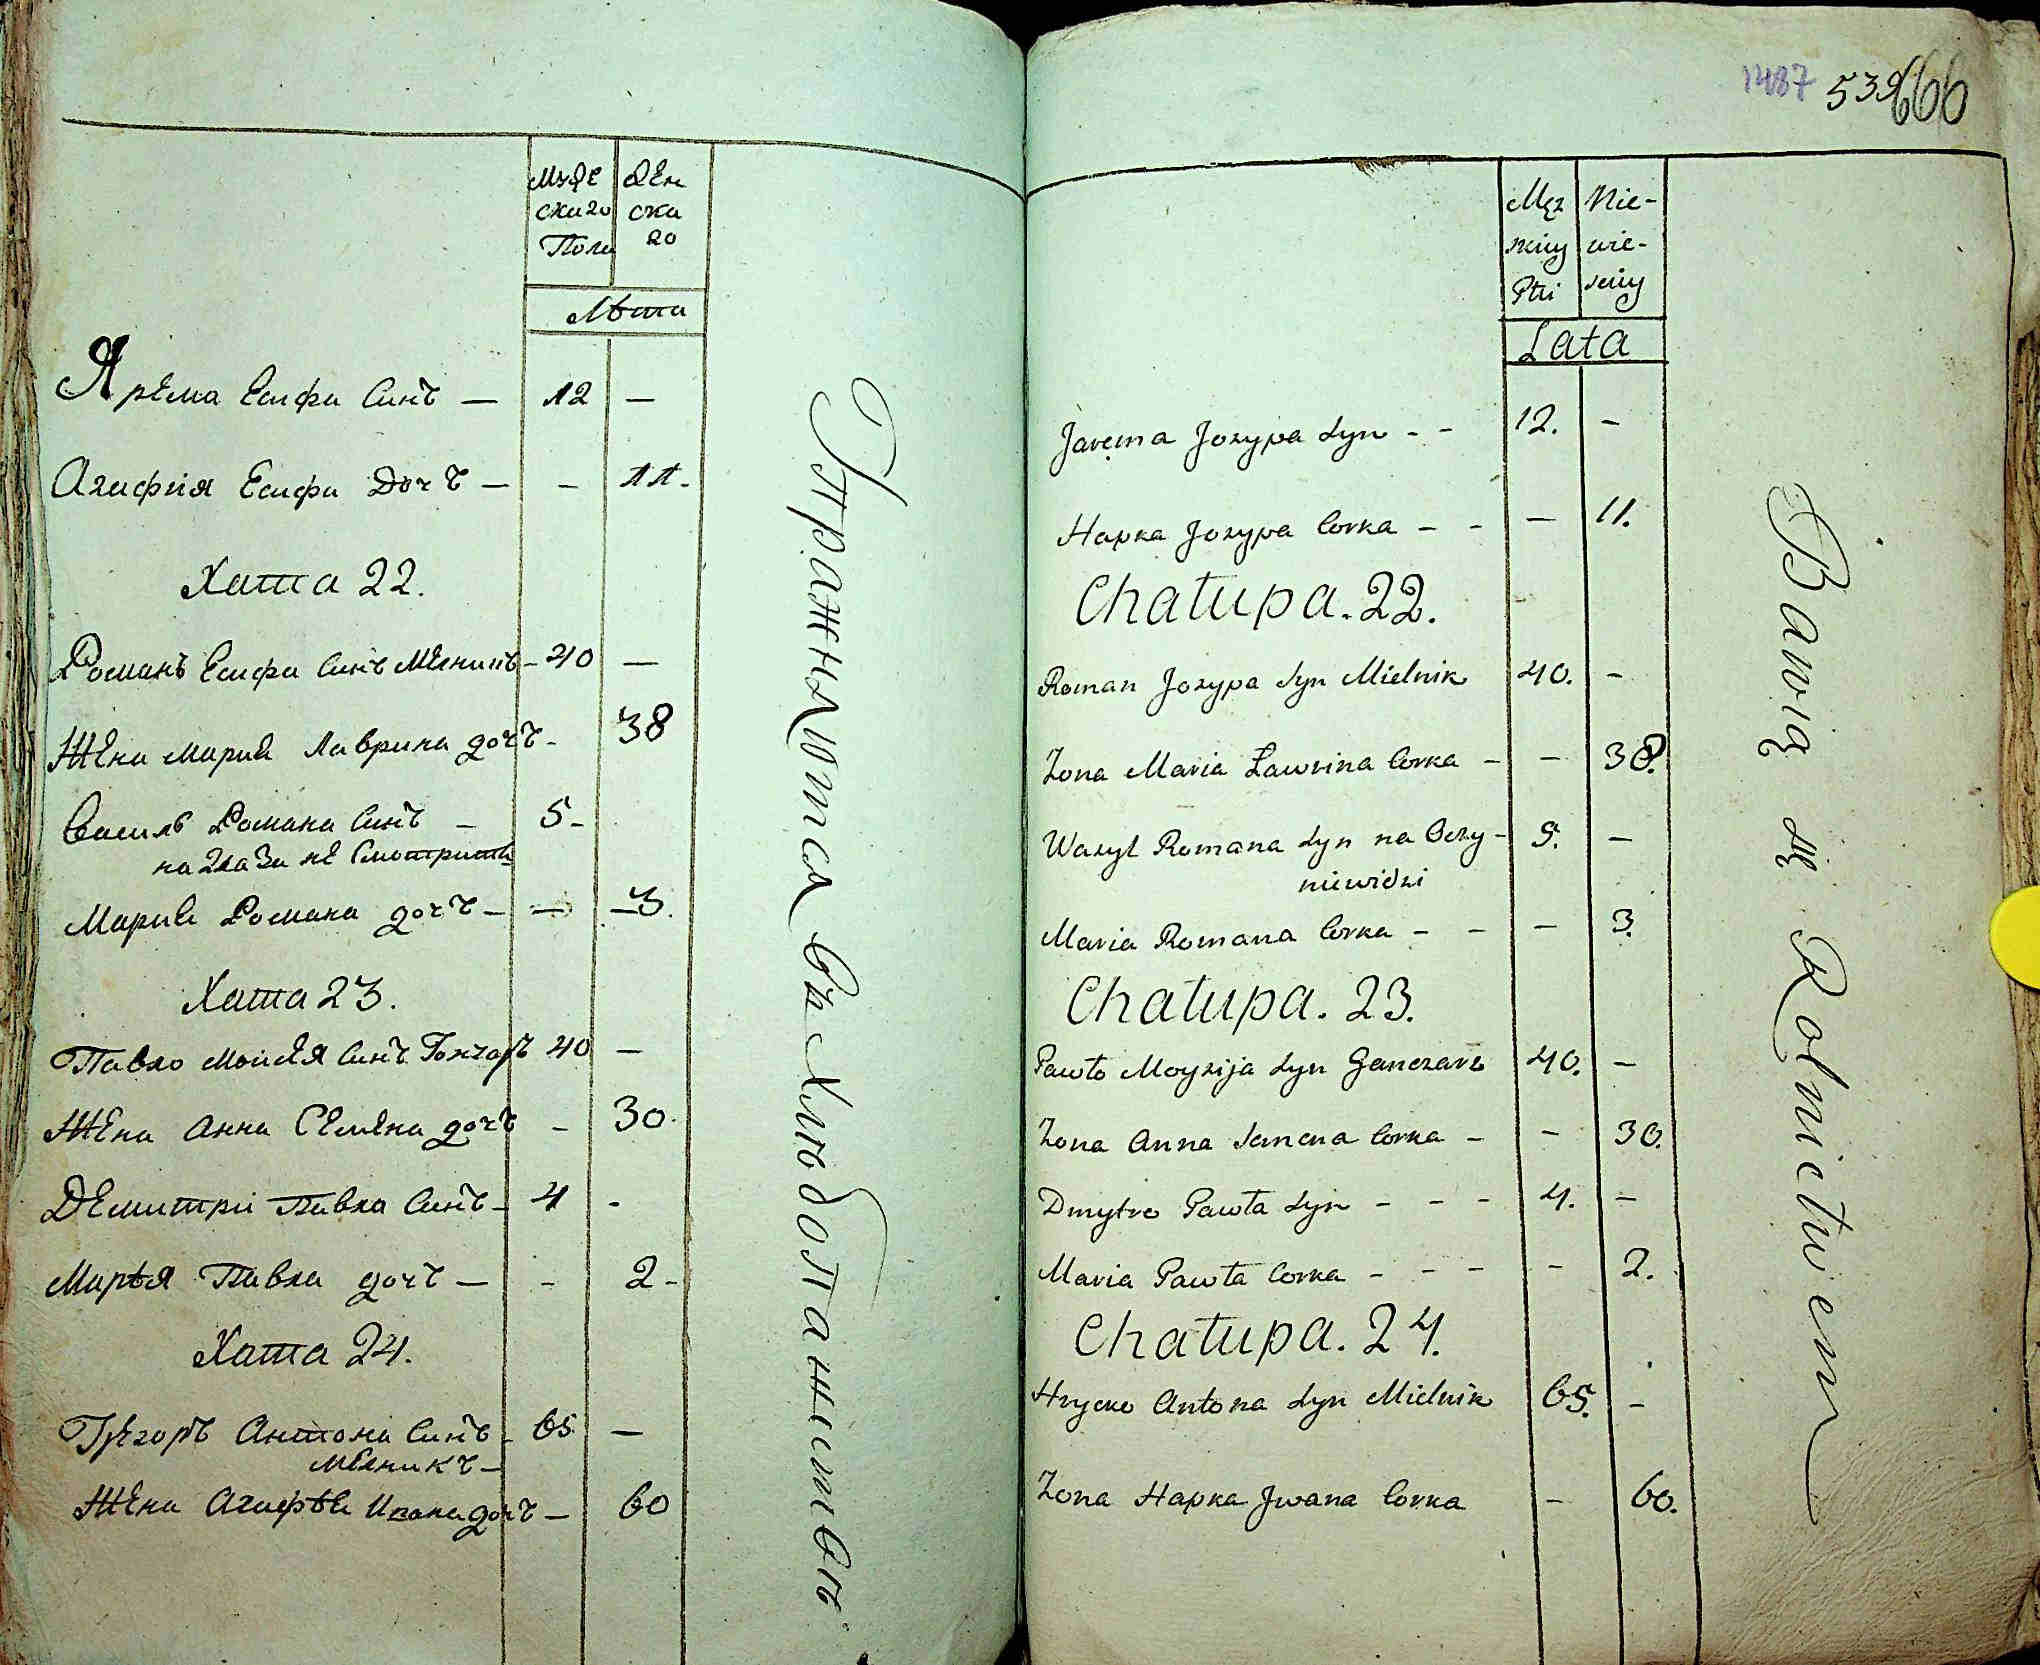 Муже Жен
скаго ска
Пола го
Лѣта
Ярема Есифа Синъ — 12 —
Агафия Есифа Дочъ — - 11.
Хата 22.
Романъ Есифа Синъ Мелникъ - 40 —
Жена Мария Лаврина дочъ - 38
Василь Романа Синъ — 5 -
на глаза не Смотритъ
Мария Романа дочъ — — 3.
Хата 23.
Павло Мойсея Синъ Гончаръ 40 —
Жена Анна Семена дочъ - 30.
Демитри Павла Синъ - 4 -
Марья Павла дочъ — - 2 -
Хата 24.
Грегоръ Антона Синъ - 65 —
Мелникъ —
Жена Агафѣя Ивана дочъ — 60
Упражняются въ Хлѣбопашествѣ
1487 539 666
Męz Nie-
skiey wie-
Płci sciey
Lata
Jarema Jozypa Syn - - 12. -
Hapka Jozypa Corka - - — 11.
Chałupa. 22.
Roman Jozypa Syn Mielnik 40. -
Zona Maria Ławrina Corka - - 38.
Wasyl Romana Syn na Oczy - 5. -
niewidzi
Maria Romana Corka - - - 3.
Chałupa. 23.
Pawło Moysija Syn Ganczarz 40. -
Zona Anna Semena Corka - - 30.
Dmytro Pawła Syn - - - 4. -
Maria Pawła Corka - - - - 2.
Chałupa. 24.
Hrycko Antona Syn Mielnik 65. -
Zona Hapka Jwana Corka - 60.
Bawią się Rolnictwem